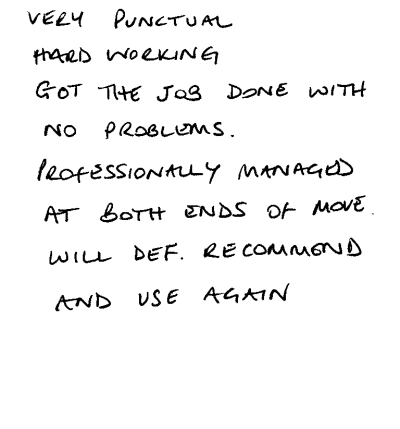 VERY PUNCTUAL
HARD WORKING
GOT THE JOB DONE WITH
NO PROBLEMS.
PROFESSIONALLY MANAGED
AT BOTH ENDS OF MOVE.
WILL DEF. RECOMMEND
AND USE AGAIN